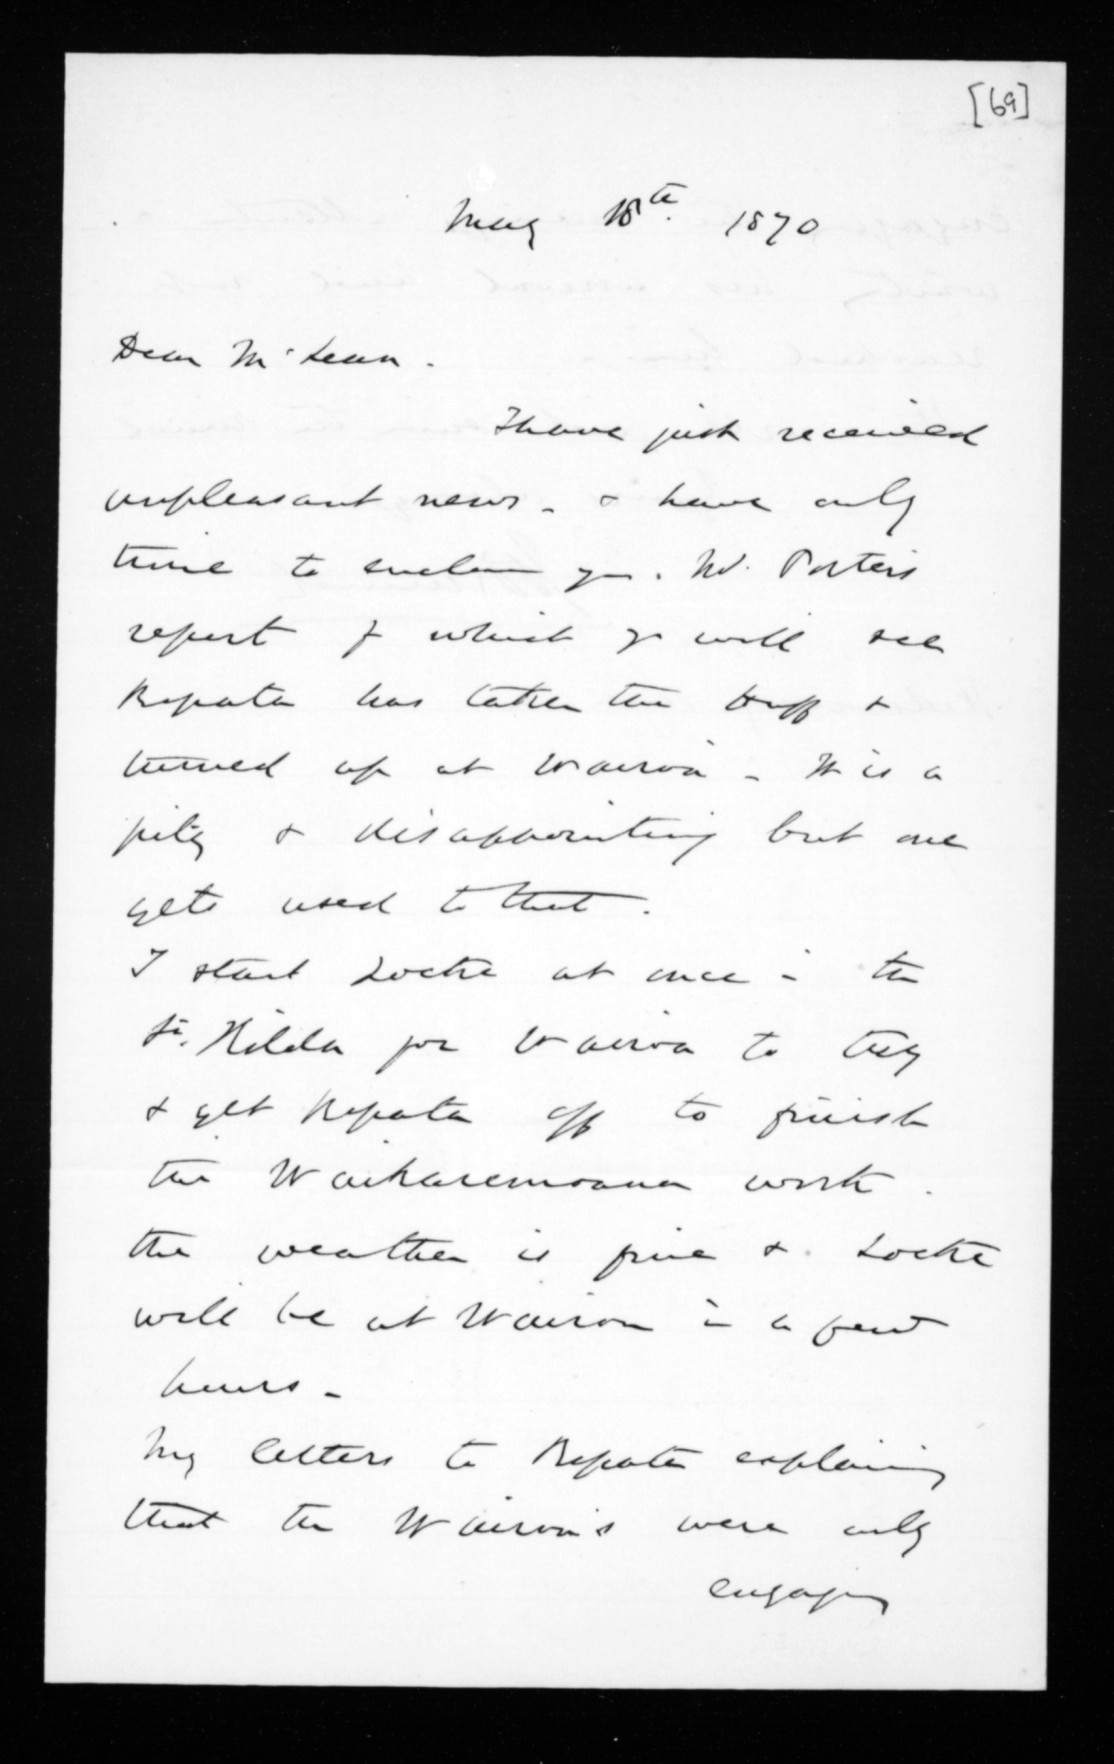 [69]
May 18th. 1870
Dear McLean.
I have just received
unpleasant news. & have only
time to enclose you. Mr. Porter's
report of which yr will see
Ropata has taken the huff &
turned up at Wairoa - It is a
pity & disappointing but one
gets used to that.
I start Locke at once in the
St. Hilda for Wairoa to try
& get Ropata off to finish
the Waikaremoana work.
the weather is fine & Locke
will be at Wairoa in a few
hours -
My letters to Ropata explaining
that the Wairoa's were only
engaging